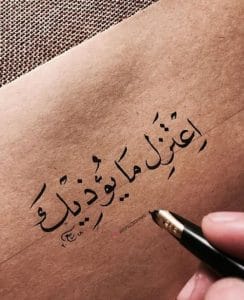 اِعْتَزِل مَا يُؤْذِيْكَ